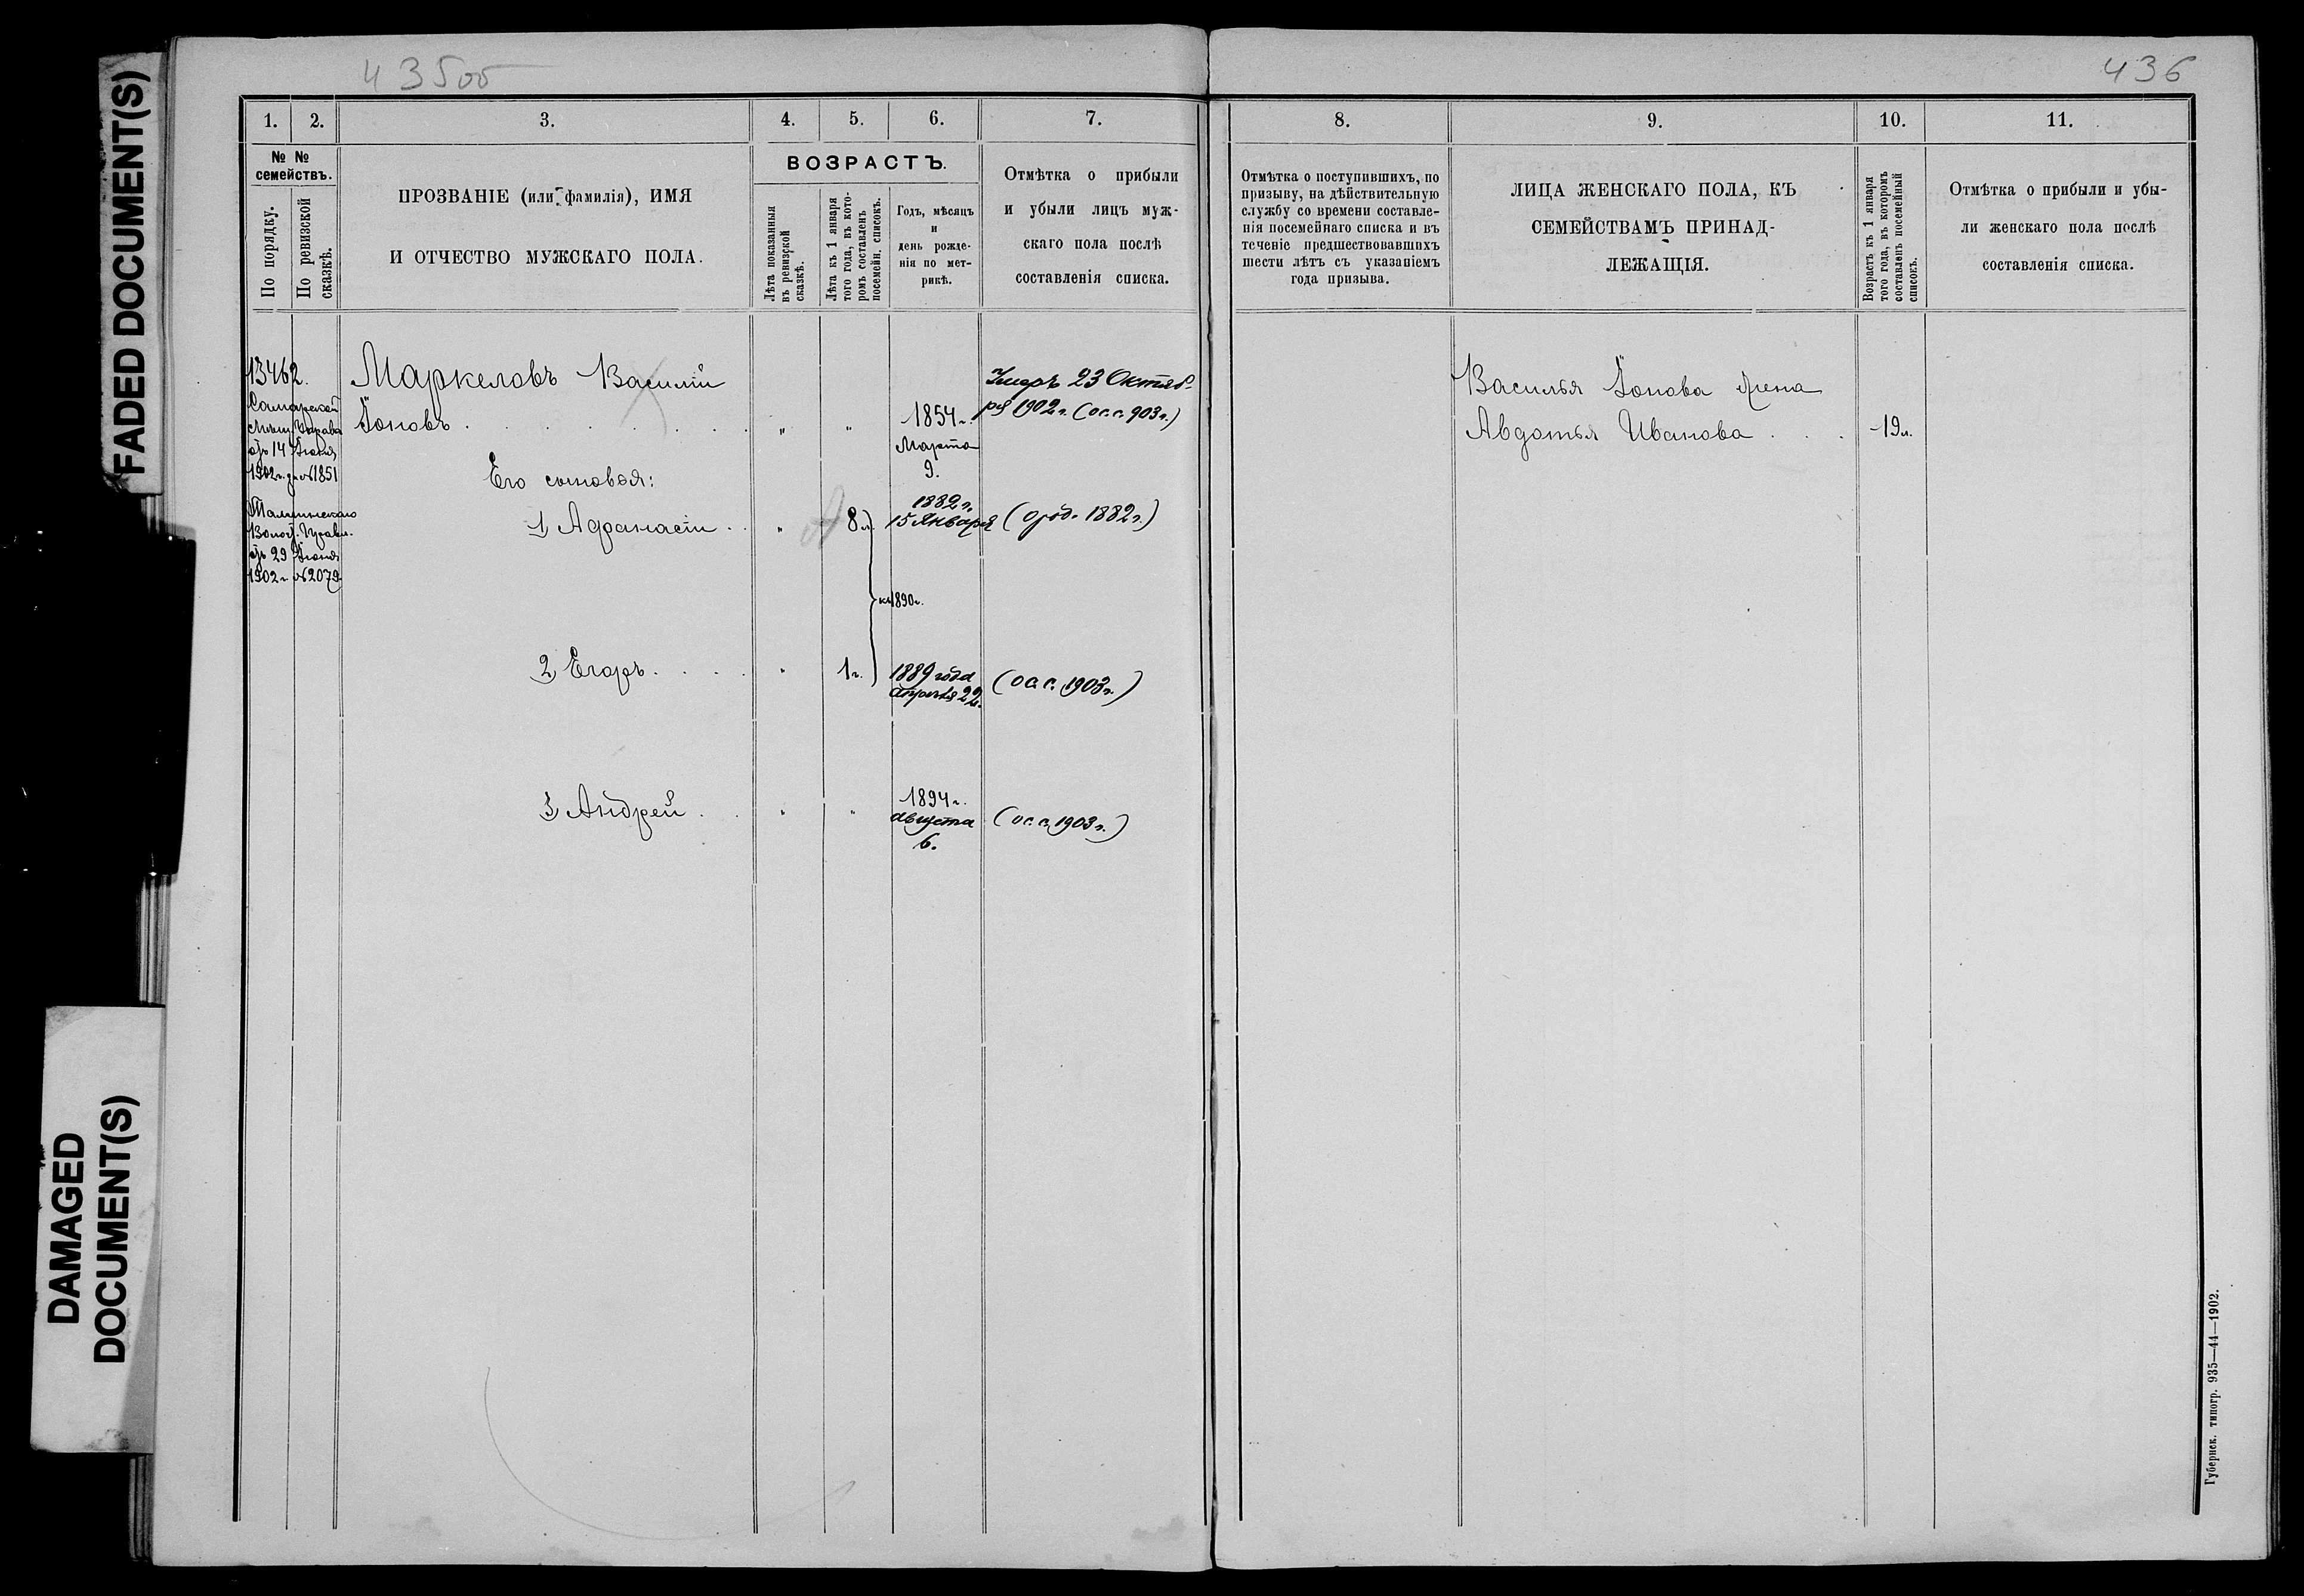 FADED DOCUMENT(S)
DAMAGED
DOCUMENT(S)
435об
436
1.
2.
3.
4.
5.
6.
7.
№ №
семействъ.
По порядку.
По ревизской
сказкѣ.
ПРОЗВАНІЕ (или фамилія), ИМЯ
И ОТЧЕСТВО МУЖСКАГО ПОЛА.
ВОЗРАСТЪ.
Лѣта показанныя
въ ревизской
сказкѣ.
Лѣта къ 1 января
того года, въ кото-
ромъ составленъ
посемейн. списокъ.
Годъ, мѣсяцъ
и
день рожде-
нія по мет-
рикѣ.
Отмѣтка о прибыли
и убыли лицъ муж-
скаго пола послѣ
составленія списка.
13462.
Самарской
Мѣщ. Управы
отъ 14 Іюня
1902 г. за № 1851
Волост. Правл.
отъ 29 Іюня
1902 г. № 2079
Маркеловъ Василій
Іоновъ
1854 г.
Марта
9.
Умеръ 23 Октяб-
ря 1902 г. (о.с.с. 903 г.)
Его сыновья:
1, Афанасій
8 л.
1882 г.
15 Января
(о род. 1882 г.)
къ 1890 г.
2, Егоръ
1 г.
1889 года
апрѣля 22.
(о.с.с. 1903 г.)
3, Андрей
1894 г.
августа
6.
(о.с.с. 1903 г.)
8.
9.
10.
11.
Отмѣтка о поступившихъ, по
призыву, на дѣйствительную
службу со времени составле-
нія посемейнаго списка и въ
теченіе предшествовавшихъ
шести лѣтъ съ указаніемъ
года призыва.
ЛИЦА ЖЕНСКАГО ПОЛА, КЪ
СЕМЕЙСТВАМЪ ПРИНАД-
ЛЕЖАЩІЯ.
Возрастъ къ 1 января
того года, въ которомъ
составленъ посемейный
списокъ.
Отмѣтка о прибыли и убы-
ли женскаго пола послѣ
составленія списка.
Василья Іонова жена
Авдотья Иванова
19 л.
Губернск. типогр. 935—44—1902.